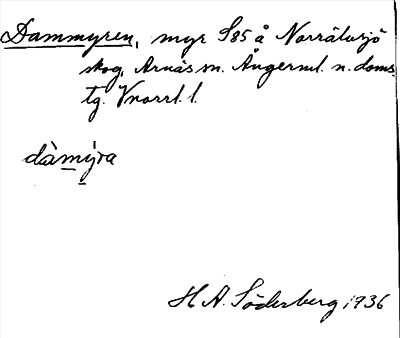 Dammyren, myr S85 å Norrälvsjö
skog, Arnäs sn. Ångerml. n. doms.
tg. Vnorrl. l.
dàmýra
H A. Söderberg 1936